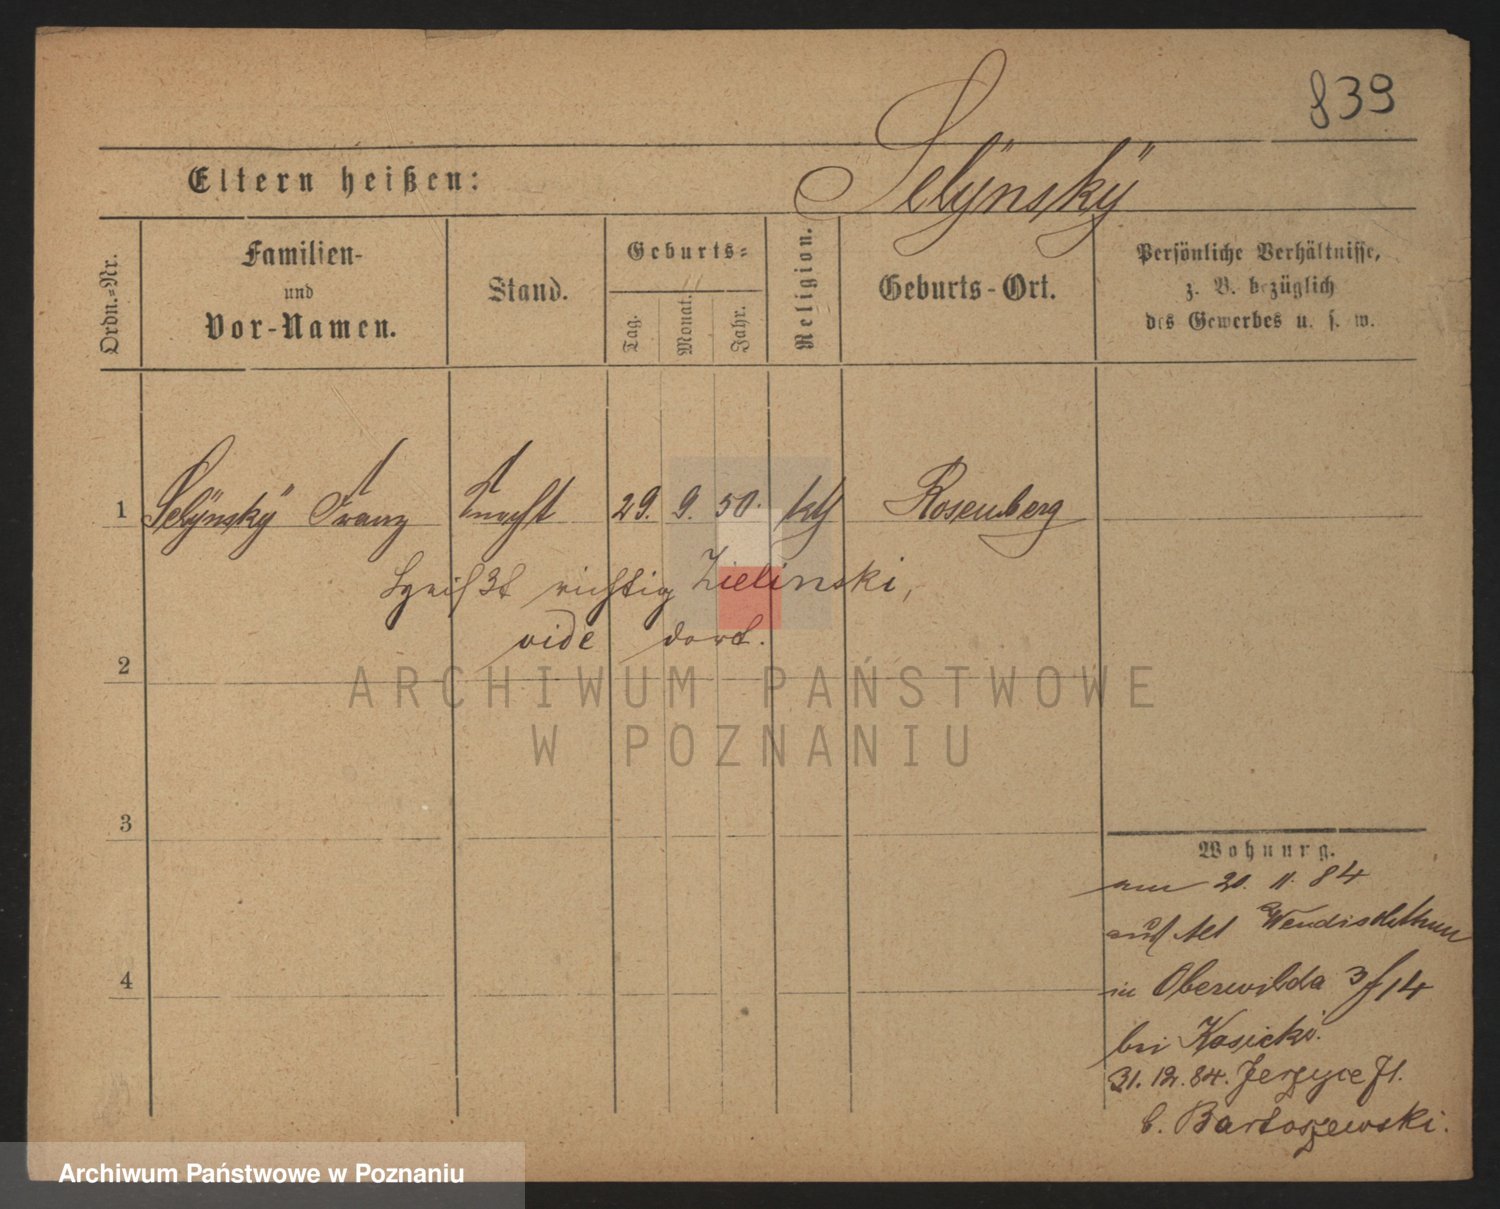 839
Selÿnskÿ
Eltern heißen:
Ordn.=Nr.
Familien-
und
Vor-Namen.
Stand.
Geburts=
Tag.
Monat.
Jahr.
Religion.
Geburts-Ort.
Persönliche Verhältnisse,
z. B. bezüglich
des Gewerbes u. s. w.
1 Selÿnskÿ Franz Knecht 29. 9. 50. kth Rosenberg
heißt richtig Zielinski,
vide dort.
2
ARCHIWUM PAŃSTWOWE
W POZNANIU
3
Wohnung.
am 20. 11. 84
auf
in Oberwilda 3/14
4
bei Kosicki.
31. 12. 84. Jerzyce 71.
b. Bartoszewski.
Archiwum Państwowe w Poznaniu